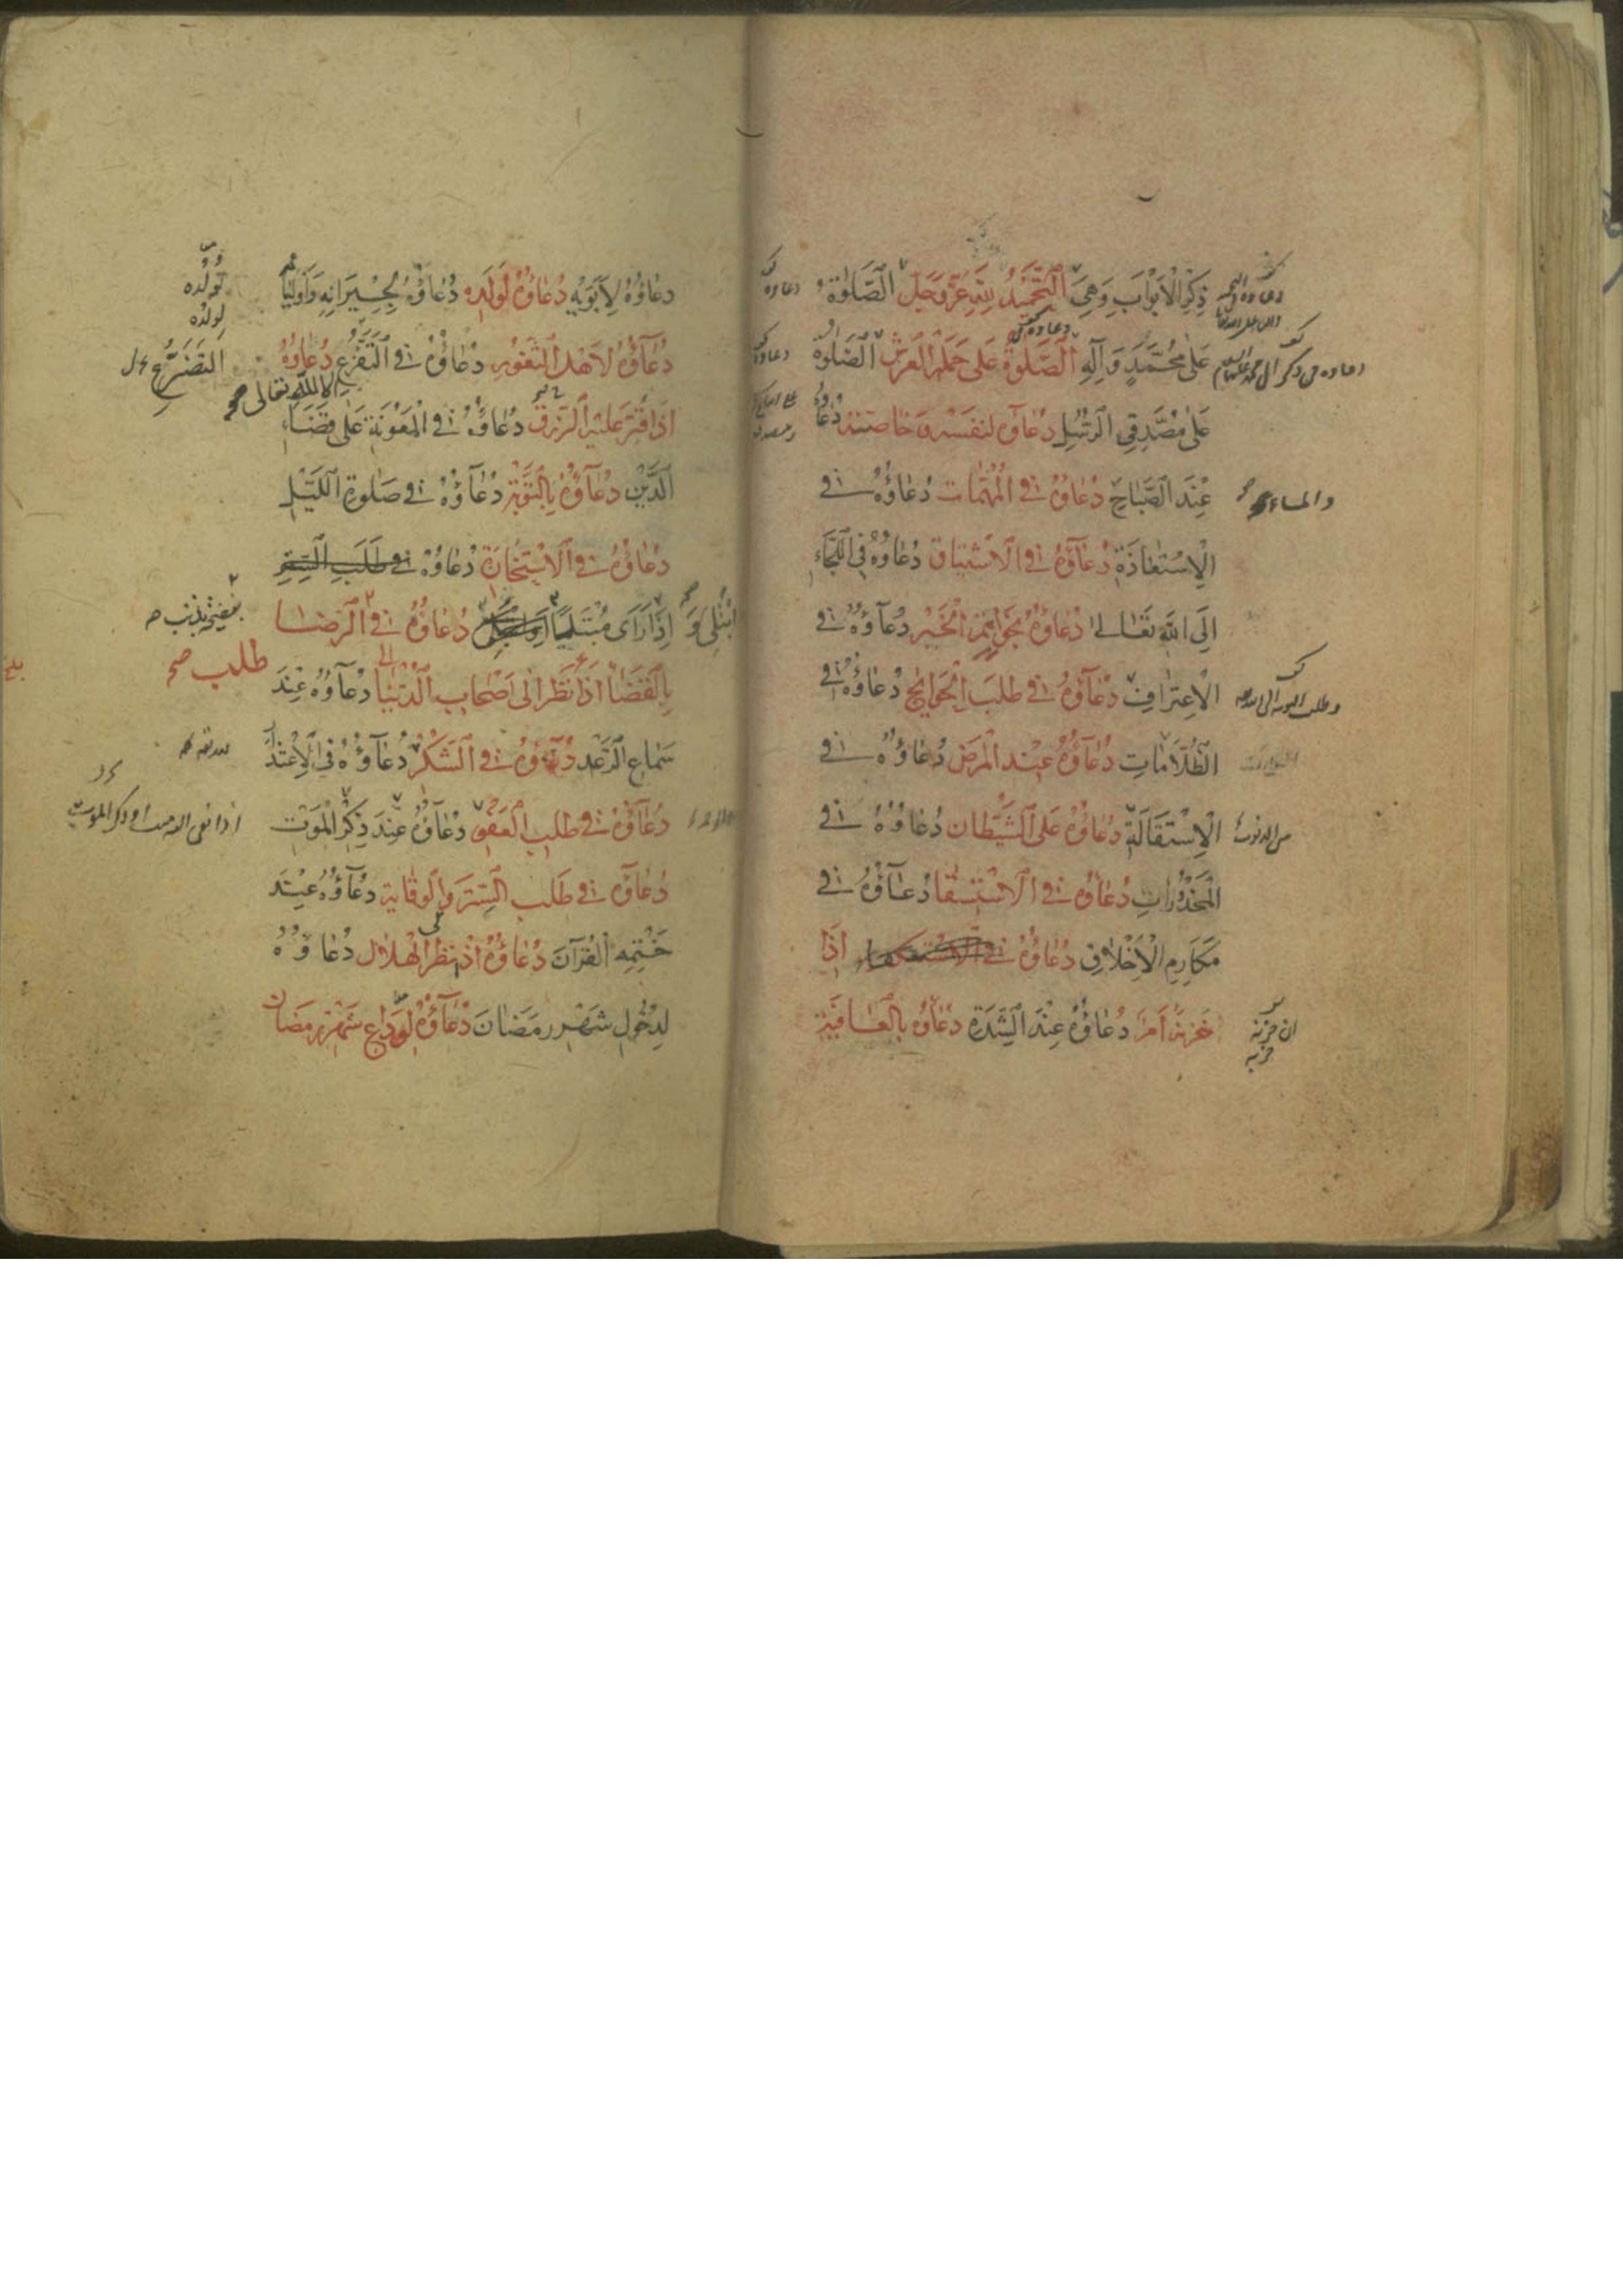 ذِكْرُ الْأَبْوَابِ وَهِيَ التَّحْمِيدُ لِلَّهِ عَزَّ وَجَلَّ الصَّلَوٰةُ
عَلَىٰ مُحَمَّدٍ وَآلِهِ الصَّلَوٰةُ عَلَىٰ حَمَلَةِ الْعَرْشِ الصَّلَوٰةُ
عَلَىٰ مُصَدِّقِي الرُّسُلِ دُعَاؤُهُ لِنَفْسِهِ وَخَاصَّتِهِ دُعَاؤُهُ
عِنْدَ الصَّبَاحِ دُعَاؤُهُ فِي الْمُهِمَّاتِ دُعَاؤُهُ فِي
والمساء
الْاِسْتِعَاذَةِ دُعَاؤُهُ فِي الْاِشْتِيَاقِ دُعَاؤُهُ فِي اللَّجَاءِ
إِلَى اللَّهِ تَعَالَىٰ دُعَاؤُهُ بِخَوَاتِمِ الْخَيْرِ دُعَاؤُهُ فِي
الْاِعْتِرَافِ دُعَاؤُهُ فِي طَلَبِ الْحَوَائِجِ دُعَاؤُهُ فِي
الظُّلَامَاتِ دُعَاؤُهُ عِنْدَ الْمَرَضِ دُعَاؤُهُ فِي
الْاِسْتِقَالَةِ دُعَاؤُهُ عَلَى الشَّيْطَانِ دُعَاؤُهُ فِي
من الذنوب
الْمَحْذُورَاتِ دُعَاؤُهُ فِي الْاِسْتِسْقَا دُعَاؤُهُ فِي
مَكَارِمِ الْأَخْلَاقِ دُعَاؤُهُ فِي إِذَا
حَزَنَهُ أَمْرٌ دُعَاؤُهُ عِنْدَ الشِّدَّةِ دُعَاؤُهُ بِالْعَافِيَةِ
دُعَاؤُهُ لِأَبَوَيْهِ دُعَاؤُهُ لِوَلَدِهِ دُعَاؤُهُ لِجِيرَانِهِ وَأَوْلِيَا
لولده
لولده
دُعَاؤُهُ لِأَهْلِ الثُّغُورِ دُعَاؤُهُ فِي التَّفَزُّعِ دُعَاؤُهُ
التَّضَرُّعِ
إلى الله تعالى صح
إِذَا قُتِّرَ عَلَيْهِ الرِّزْقُ دُعَاؤُهُ فِي الْمَعُونَةِ عَلَىٰ قَضَاءِ
الدَّيْنِ دُعَاؤُهُ بِالتَّوْبَةِ دُعَاؤُهُ فِي صَلَوٰةِ اللَّيْلِ
دُعَاؤُهُ فِي الْاِسْتِخَارَةِ دُعَاؤُهُ فِي طَلَبِ السِّتْرِ
ابْتُلِيَ وَ إِذَا رَأَىٰ مُبْتَلِيًا دُعَاؤُهُ فِي الرِّضَا
طلب صح
بِالْقَضَا إِذَا نَظَرَ إِلَىٰ أَصْحَابِ الدُّنْيَا دُعَاؤُهُ عِنْدَ
سَمَاعِ الرَّعْدِ دُعَاؤُهُ فِي الشُّكْرِ دُعَاؤُهُ فِي الْاِعْتِذَارِ
دُعَاؤُهُ فِي طَلَبِ الْعَفْوِ دُعَاؤُهُ عِنْدَ ذِكْرِ الْمَوْتِ
اذا نعى اليه ميت او ذكر الموت
دُعَاؤُهُ فِي طَلَبِ السِّتْرِ وَالْوِقَايَةِ دُعَاؤُهُ عِنْدَ
خَتْمِهِ الْقُرْآنَ دُعَاؤُهُ إِذَا نَظَرَ الْهِلَالَ دُعَاؤُهُ
لِدُخُولِ شَهْرِ رَمَضَانَ دُعَاؤُهُ لِوَدَاعِ شَهْرِ رَمَضَانَ